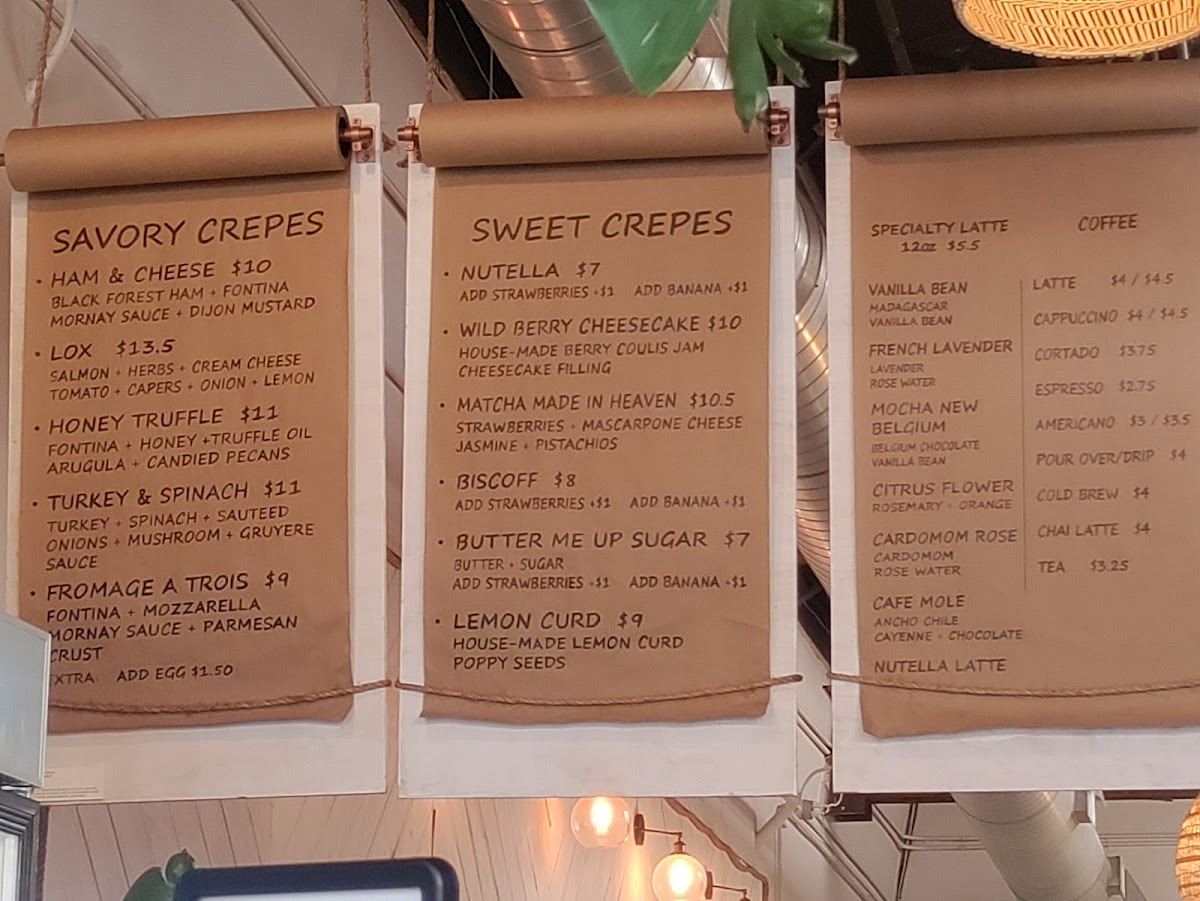 SAVORY CREPES
• HAM & CHEESE $10
BLACK FOREST HAM + FONTINA
MORNAY SAUCE + DIJON MUSTARD
• LOX $13.5
SALMON + HERBS + CREAM CHEESE
TOMATO + CAPERS + ONION + LEMON
• HONEY TRUFFLE $11
FONTINA + HONEY +TRUFFLE OIL
ARUGULA + CANDIED PECANS
• TURKEY & SPINACH $11
TURKEY + SPINACH + SAUTEED
ONIONS + MUSHROOM + GRUYERE
SAUCE
• FROMAGE A TROIS $9
FONTINA + MOZZARELLA
MORNAY SAUCE + PARMESAN
CRUST
EXTRA ADD EGG $1.50
SWEET CREPES
• NUTELLA $7
ADD STRAWBERRIES +$1 ADD BANANA +$1
• WILD BERRY CHEESECAKE $10
HOUSE-MADE BERRY COULIS JAM
CHEESECAKE FILLING
• MATCHA MADE IN HEAVEN $10.5
STRAWBERRIES + MASCARPONE CHEESE
JASMINE + PISTACHIOS
• BISCOFF $8
ADD STRAWBERRIES +$1 ADD BANANA +$1
• BUTTER ME UP SUGAR $7
BUTTER + SUGAR
ADD STRAWBERRIES +$1 ADD BANANA +$1
• LEMON CURD $9
HOUSE-MADE LEMON CURD
POPPY SEEDS
SPECIALTY LATTE
12oz $5.5
VANILLA BEAN
MADAGASCAR
VANILLA BEAN
FRENCH LAVENDER
LAVENDER
ROSE WATER
MOCHA NEW
BELGIUM
BELGIUM CHOCOLATE
VANILLA BEAN
CITRUS FLOWER
ROSEMARY + ORANGE
CARDOMOM ROSE
CARDOMOM
ROSE WATER
CAFE MOLE
ANCHO CHILE
CAYENNE + CHOCOLATE
NUTELLA LATTE
COFFEE
LATTE $4 / $4.5
CAPPUCCINO $4 / $4.5
CORTADO $3.75
ESPRESSO $2.75
AMERICANO $3 / $3.5
POUR OVER/DRIP $4
COLD BREW $4
CHAI LATTE $4
TEA $3.25